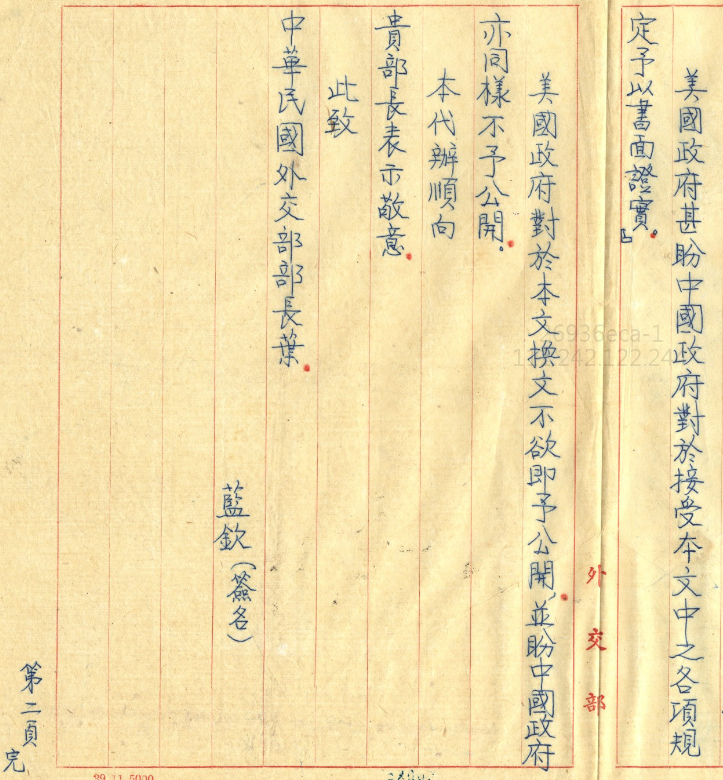 美國政府甚盼中國政府對於接受本文中之各項規
定予以書面證實。」
外交部
美國政府對於本文換文不欲即予公開，並盼中國政府
亦同樣不予公開。
本代辦順向
貴部長表示敬意。
此致
中華民國外交部部長葉。
藍欽（簽名）
第二頁
完
6936eca-1